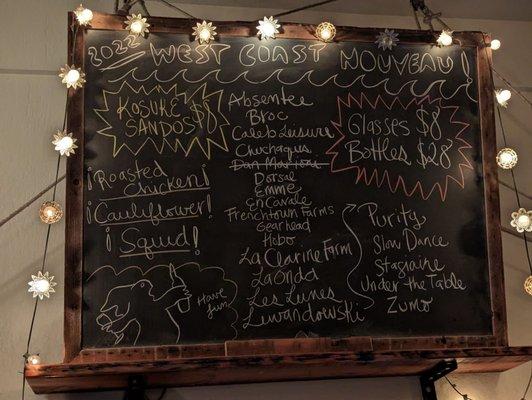 2022 WEST COAST NOUVEAU!
KOSUKE $8
SANDOS
¡Roasted
Chicken!
¡Cauliflower!
¡Squid!
Have
fun
Absentee
Broc
Caleb Leisure
Chuchaquis
Dan Marioni
Dorsal
Emme
En Cavale
Frenchtown Farms
Gearhead
Hobo
La Clarine Farm
LaOnda
Les Lunes
Lewandowski
Glasses $8
Bottles $28
Purity
Slow Dance
Stagiaire
Under the Table
Zumo